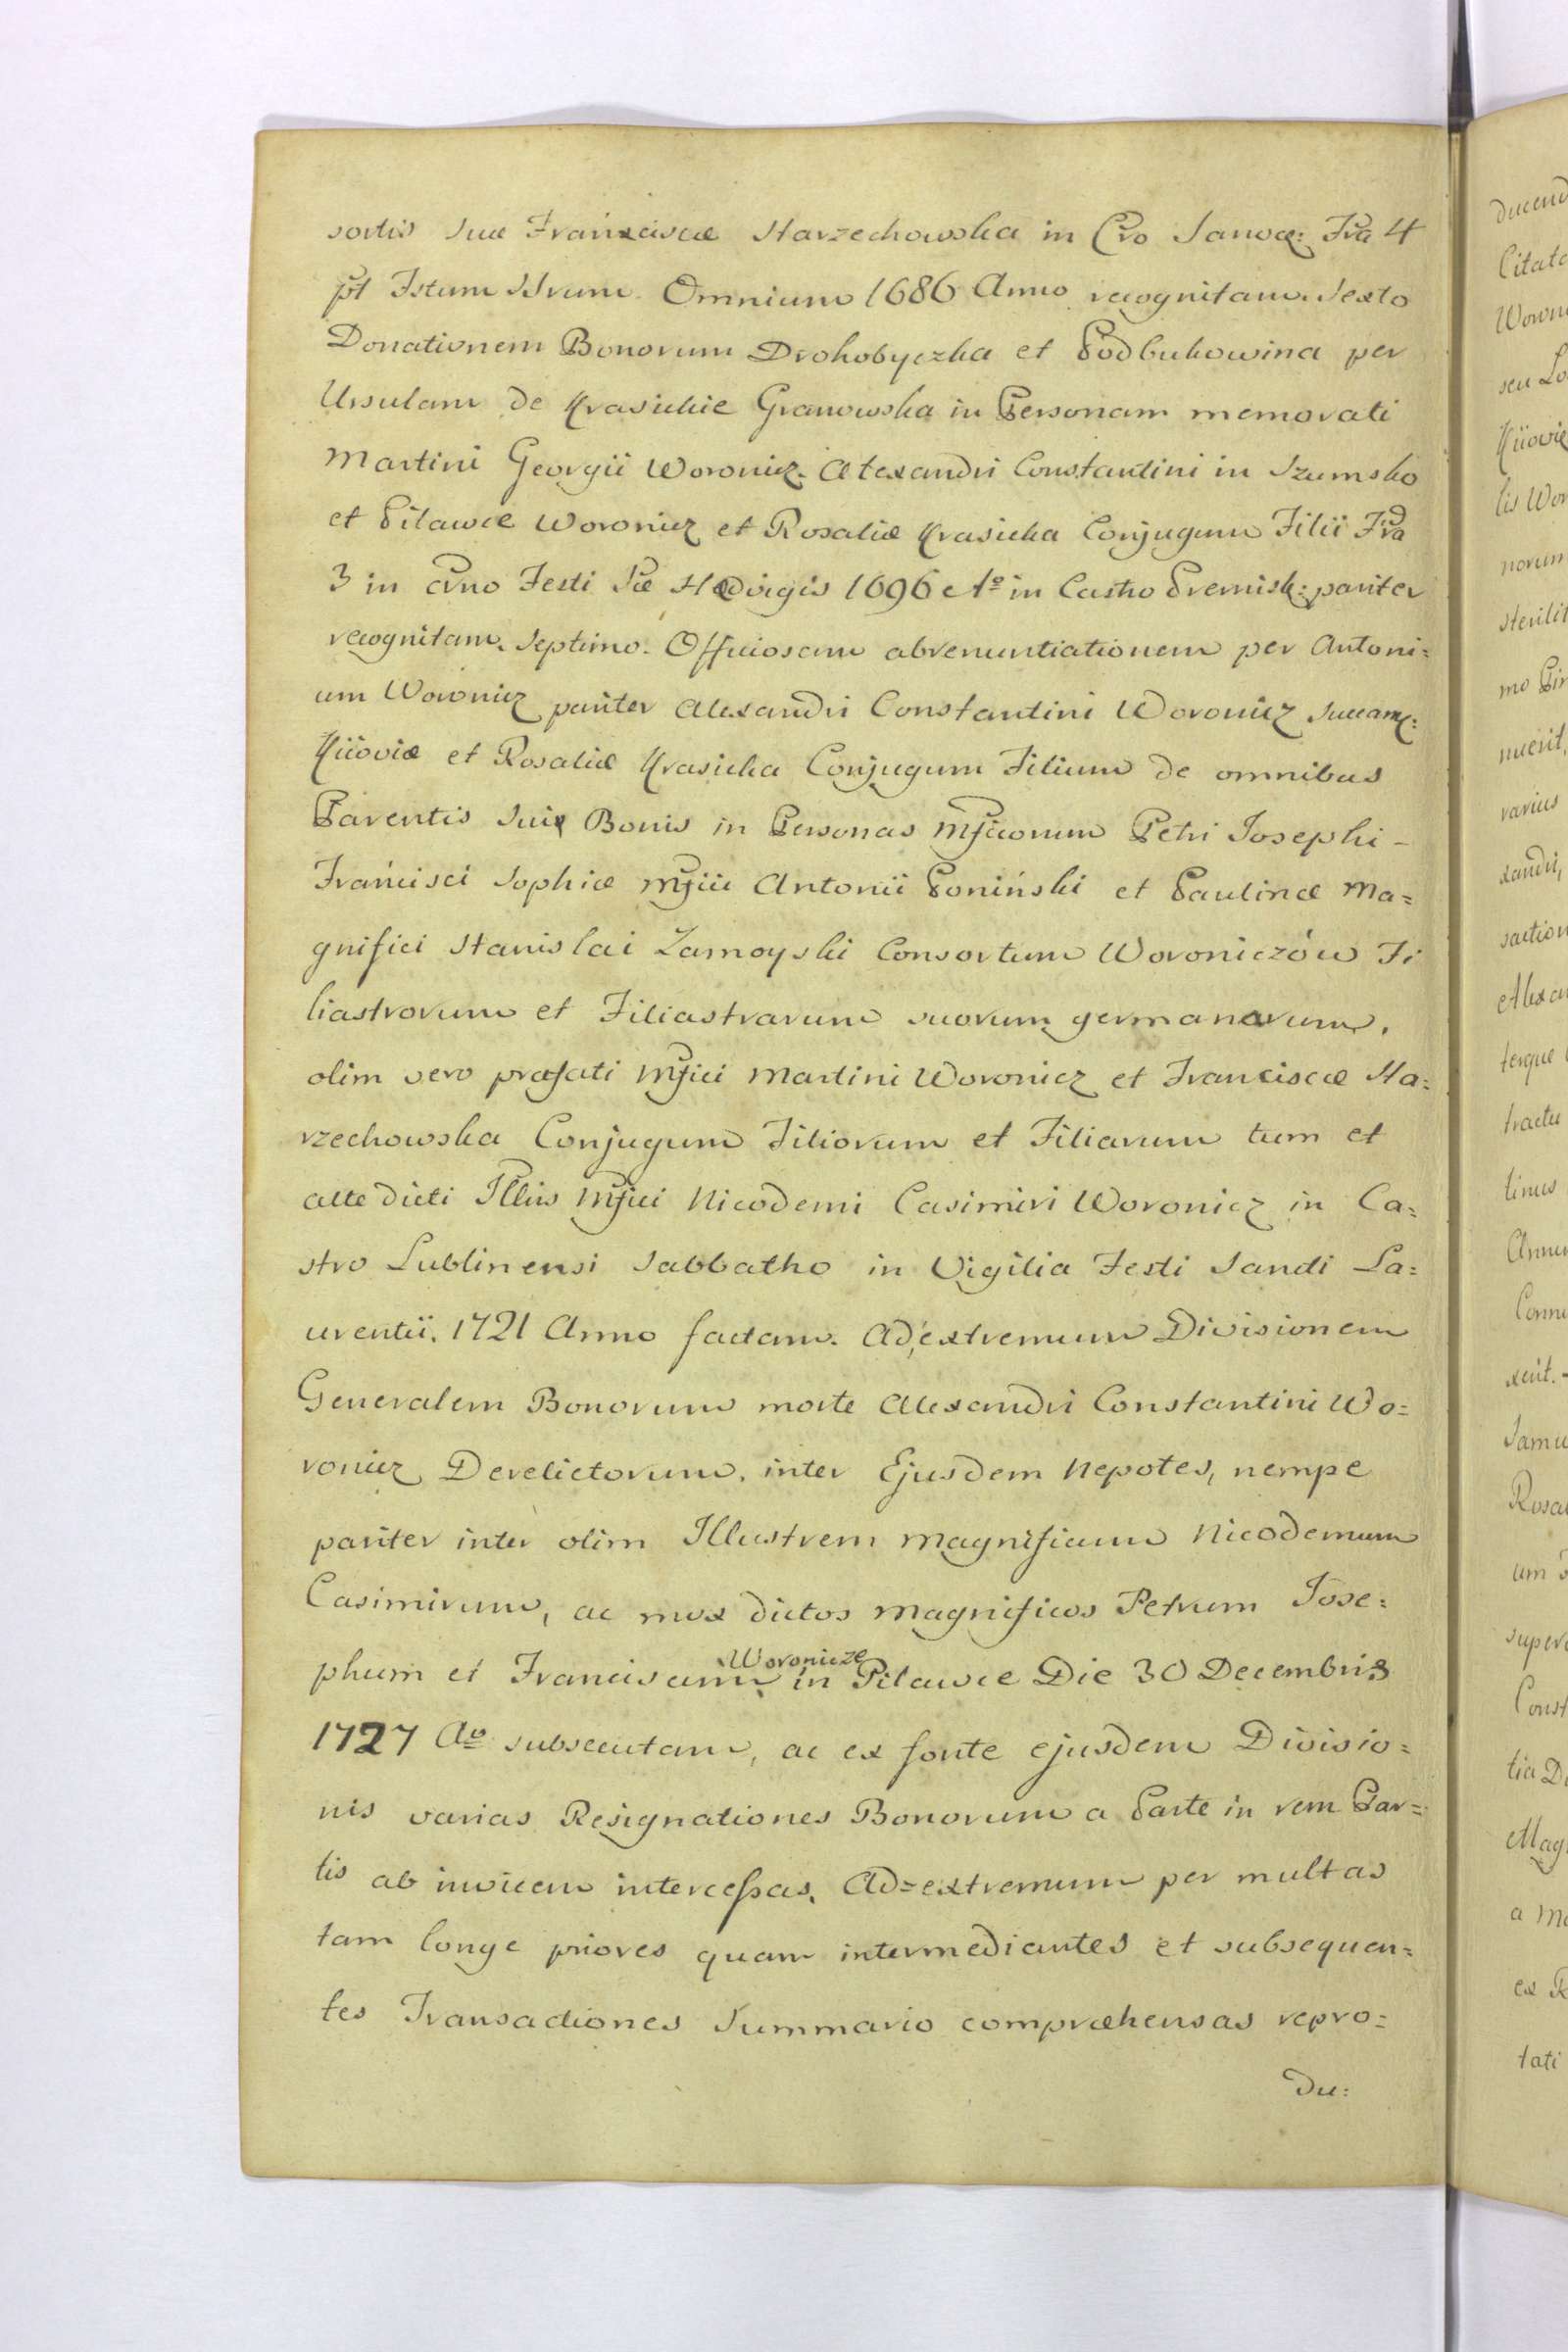 sortis suæ Franciscæ Starzechowska in Cro Sanoc: Fra 4
pt Fstum SSrum. Omnium 1686 Anno recognitam. Sexto
Donationem Bonorum Drohobyczka et Podbukowina per
Ursulam de Krasickie Granowska in Personam memorati
Martini Georgii Woronicz. Alexandri Constantini in Szumsko
et Pilawce Woronicz et Rosaliæ Krasicka Conjugum Filii Fra
3 in crno Festi Stæ Hedvigis 1696 Ao in Castro Premisl: pariter
recognitam. Septimo. Officiosam abrenuntiationem per Antoni=
um Woronicz pariter Alexandri Constantini Woronicz Succam:
Kiioviæ et Rosaliæ Krasicka Conjugum Filium de omnibus
Parentis sui Bonis in Personas Mficorum Petri Josephi -
Francisci Sophiæ Mfici Antonii Poniński et Paulinæ Ma=
gnifici Stanislai Zamoyski Consortum Woroniczów Fi
liastrorum et Filiastrarum suorum germanarum,
olim vero præfati Mfici Martini Woronicz et Franciscæ Sta=
rzechowska Conjugum Filiorum et Filiarum tum et
alte dicti Illius Mfici Nicodemi Casimiri Woronicz in Ca=
stro Lublinensi Sabbatho in Vigilia Festi Sancti La=
urentii. 1721 Anno factam. Ad,extremum Divisionem
Generalem Bonorum morte Alexandri Constantini Wo=
ronicz Derelictorum, inter Ejusdem Nepotes, nempe
pariter inter olim Illustrem Magnificum Nicodemum
Casimirum, ac mox dictos Magnificos Petrum Jose=
phum et Franciscum Woronicze in Pilawce Die 30 Decembris
1727 Ao subsecutam, ac ex fonte ejusdem Divisio=
nis varias Resignationes Bonorum a Parte in rem Par=
tis ab invicem intercessas. Ad=extremum per multas
tam longe priores quam intermediantes et subsequen=
tes Transactiones Summario compræhensas repro=
du: